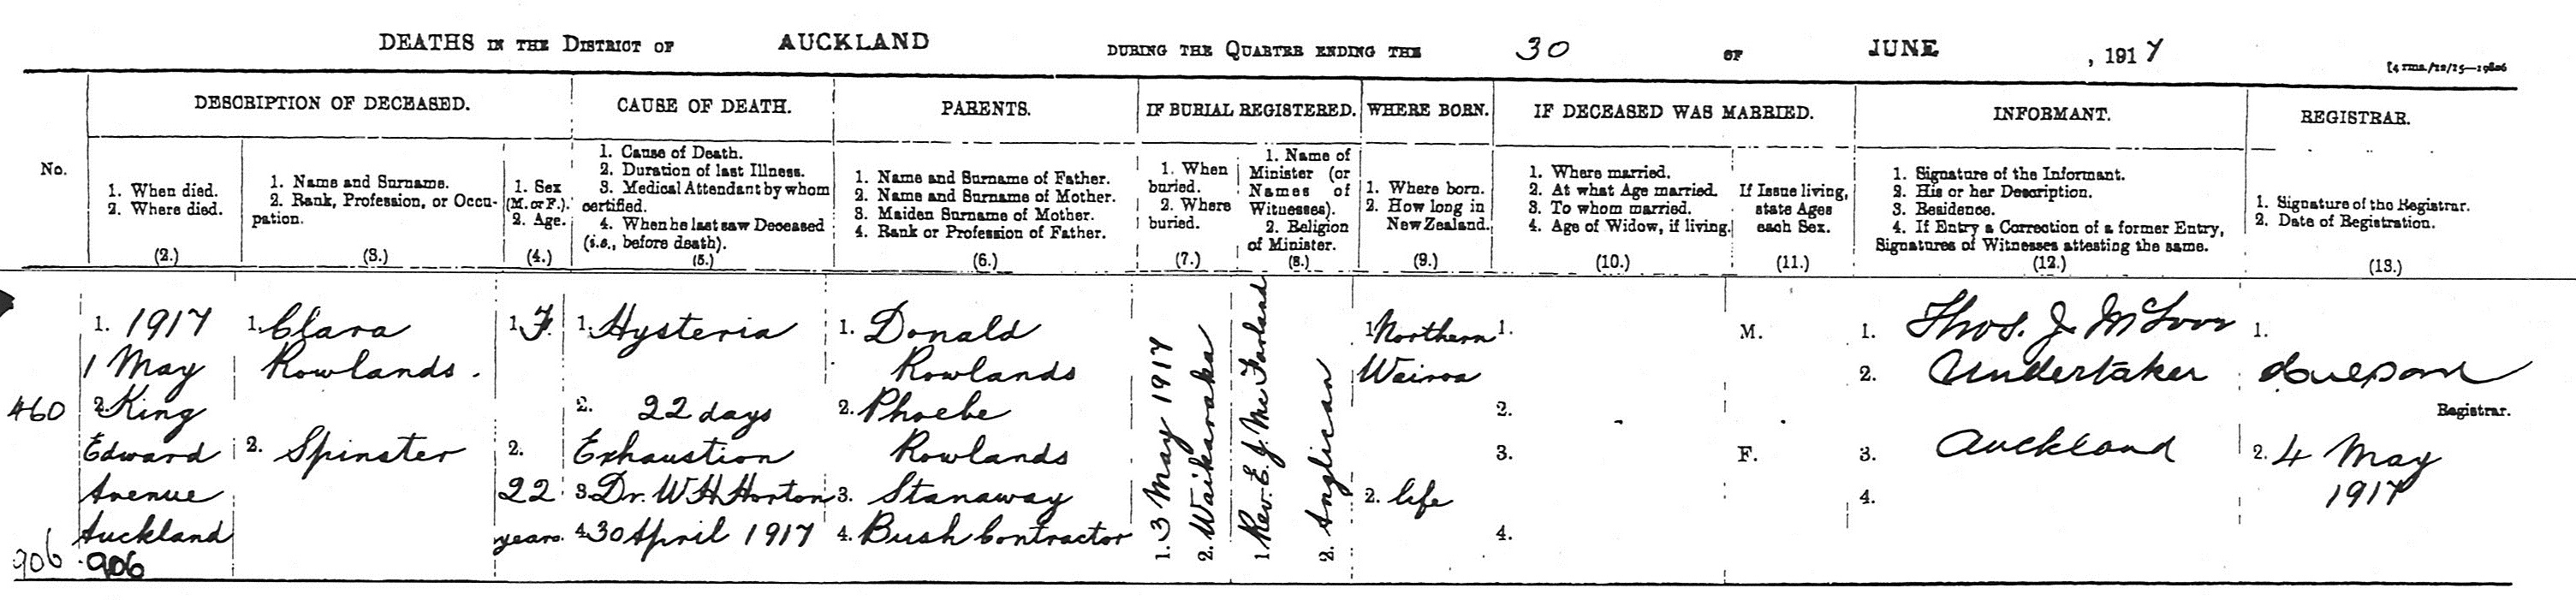 DEATHS IN THE DISTRICT OF AUCKLAND DURING THE QUARTER ENDING THE 30 OF JUNE, 1917
No.
DESCRIPTION OF DECEASED.
1. When died.
2. Where died.
(2.)
1. Name and Surname.
2. Rank, Profession, or Occu-
pation.
(3.)
1. Sex
(M. or F.).
2. Age.
(4.)
CAUSE OF DEATH.
1. Cause of Death.
2. Duration of last Illness.
3. Medical Attendant by whom
certified.
4. When he last saw Deceased
(i.e., before death).
(5.)
PARENTS.
1. Name and Surname of Father.
2. Name and Surname of Mother.
3. Maiden Surname of Mother.
4. Rank or Profession of Father.
(6.)
IF BURIAL REGISTERED.
1. When
buried.
2. Where
buried.
(7.)
1. Name of
Minister (or
Names of
Witnesses).
2. Religion
of Minister.
(8.)
WHERE BORN.
1. Where born.
2. How long in
New Zealand.
(9.)
IF DECEASED WAS MARRIED.
1. Where married.
2. At what Age married.
3. To whom married.
4. Age of Widow, if living.
(10.)
If Issue living,
state Ages
each Sex.
(11.)
INFORMANT.
1. Signature of the Informant.
2. His or her Description.
3. Residence.
4. If Entry a Correction of a former Entry,
Signatures of Witnesses attesting the same.
(12.)
REGISTRAR.
1. Signature of the Registrar.
2. Date of Registration.
(13.)
460
906
1. 1917
1 May
2. King
Edward
Avenue
Auckland
906
1. Clara
Rowlands.
2. Spinster
1. F.
2.
22
years.
1. Hysteria
2. 22 days
Exhaustion
3. Dr. W H Horton
4. 30 April 1917
1. Donald
Rowlands
2. Phoebe
Rowlands
3. Stanaway
4. Bush Contractor
1. 3 May 1917
2. Waikaraka
1. Rev. E. J. McFarland
2. Anglican
1. Northern
Wairoa
2. life
1.
2.
3.
4.
M.
F.
1. Thos. J
2. Undertaker
3. Auckland
4.
1.
Registrar.
2. 4 May
1917